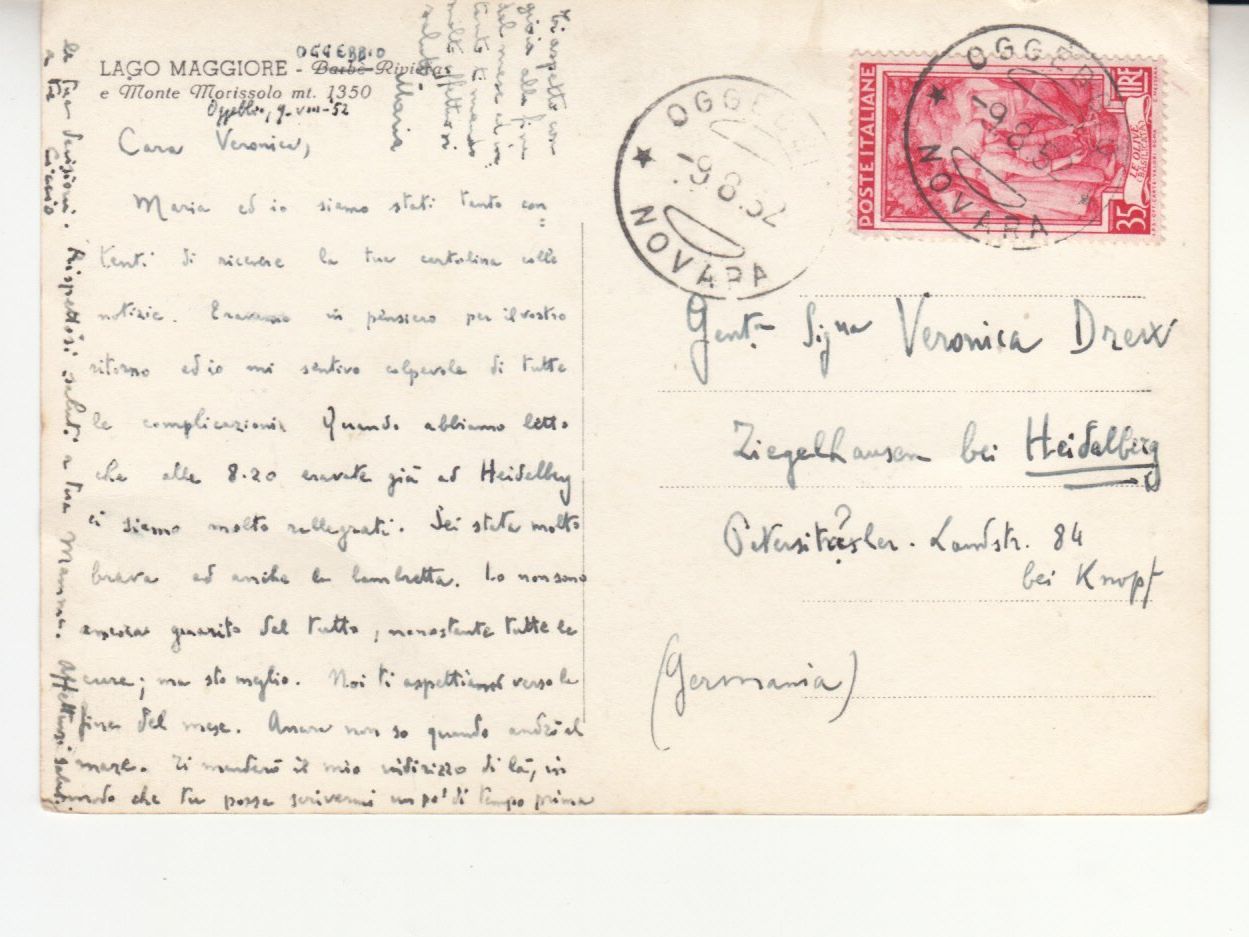 OGGEBBIO
LAGO MAGGIORE - Barbè-Rivieras
e Monte Morissolo mt. 1350
Oggebbio, 9-VIII-52
Cara Veronica,
Maria ed io siamo stati tanto con=
tenti di ricevere la tua cartolina colle
notizie. Eravamo in pensiero per il vostro
ritorno ed io mi sentivo colpevole di tutte
le complicazioni. Quando abbiamo letto
che alle 8.20 eravate già ad Heidelberg
ci siamo molto rallegrati. Sei stata molto
brava ed anche la lambretta. Io non sono
ancora guarito del tutto, nonostante tutte le
cure; ma sto meglio. Noi ti aspettiamo verso la
fine del mese. Ancora non so quando andrò al
mare. Ti manderò il mio indirizzo di là, in
modo che tu possa scrivermi un po' di tempo prima
le tue decisioni. Rispettosi saluti a tua Mamma. Affettuosi saluti
a te
Ti aspetto con
gioia alla fine
del mese ed in=
tanto ti mando
molti affettuosi
saluti
Maria
OGGEBBIO
-9.8.52
NOVARA
POSTE ITALIANE
35 LIRE
LE OLIVE
OGGEBBIO
-9.8.52
NOVARA
Gent. Sig.na Veronica Drex
Ziegelhausen bei Heidelberg
?
Landstr. 84
bei Knopf
(Germania)